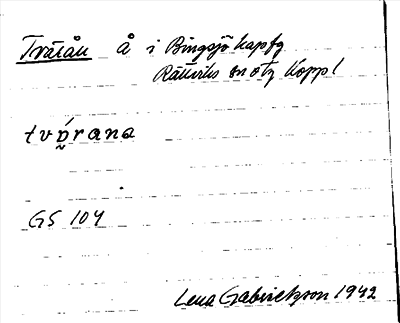 Tvärån å i Bingsjö kapfg
Rättviks sn otz Koppl
tvṕ̬rana
GS 104
Lena Gabrielsson 1942